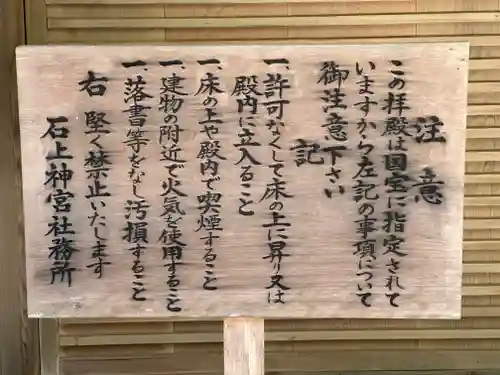 注意
この拝殿は国宝に指定されて
いますから左記の事項について
御注意下さい
記
一、許可なくして床の上に昇り又は
殿内に立入ること
一、床の上や殿内で喫煙すること
一、建物の附近で火気を使用すること
一、落書等をなし汚損すること
右 堅く禁止いたします
石上神宮社務所